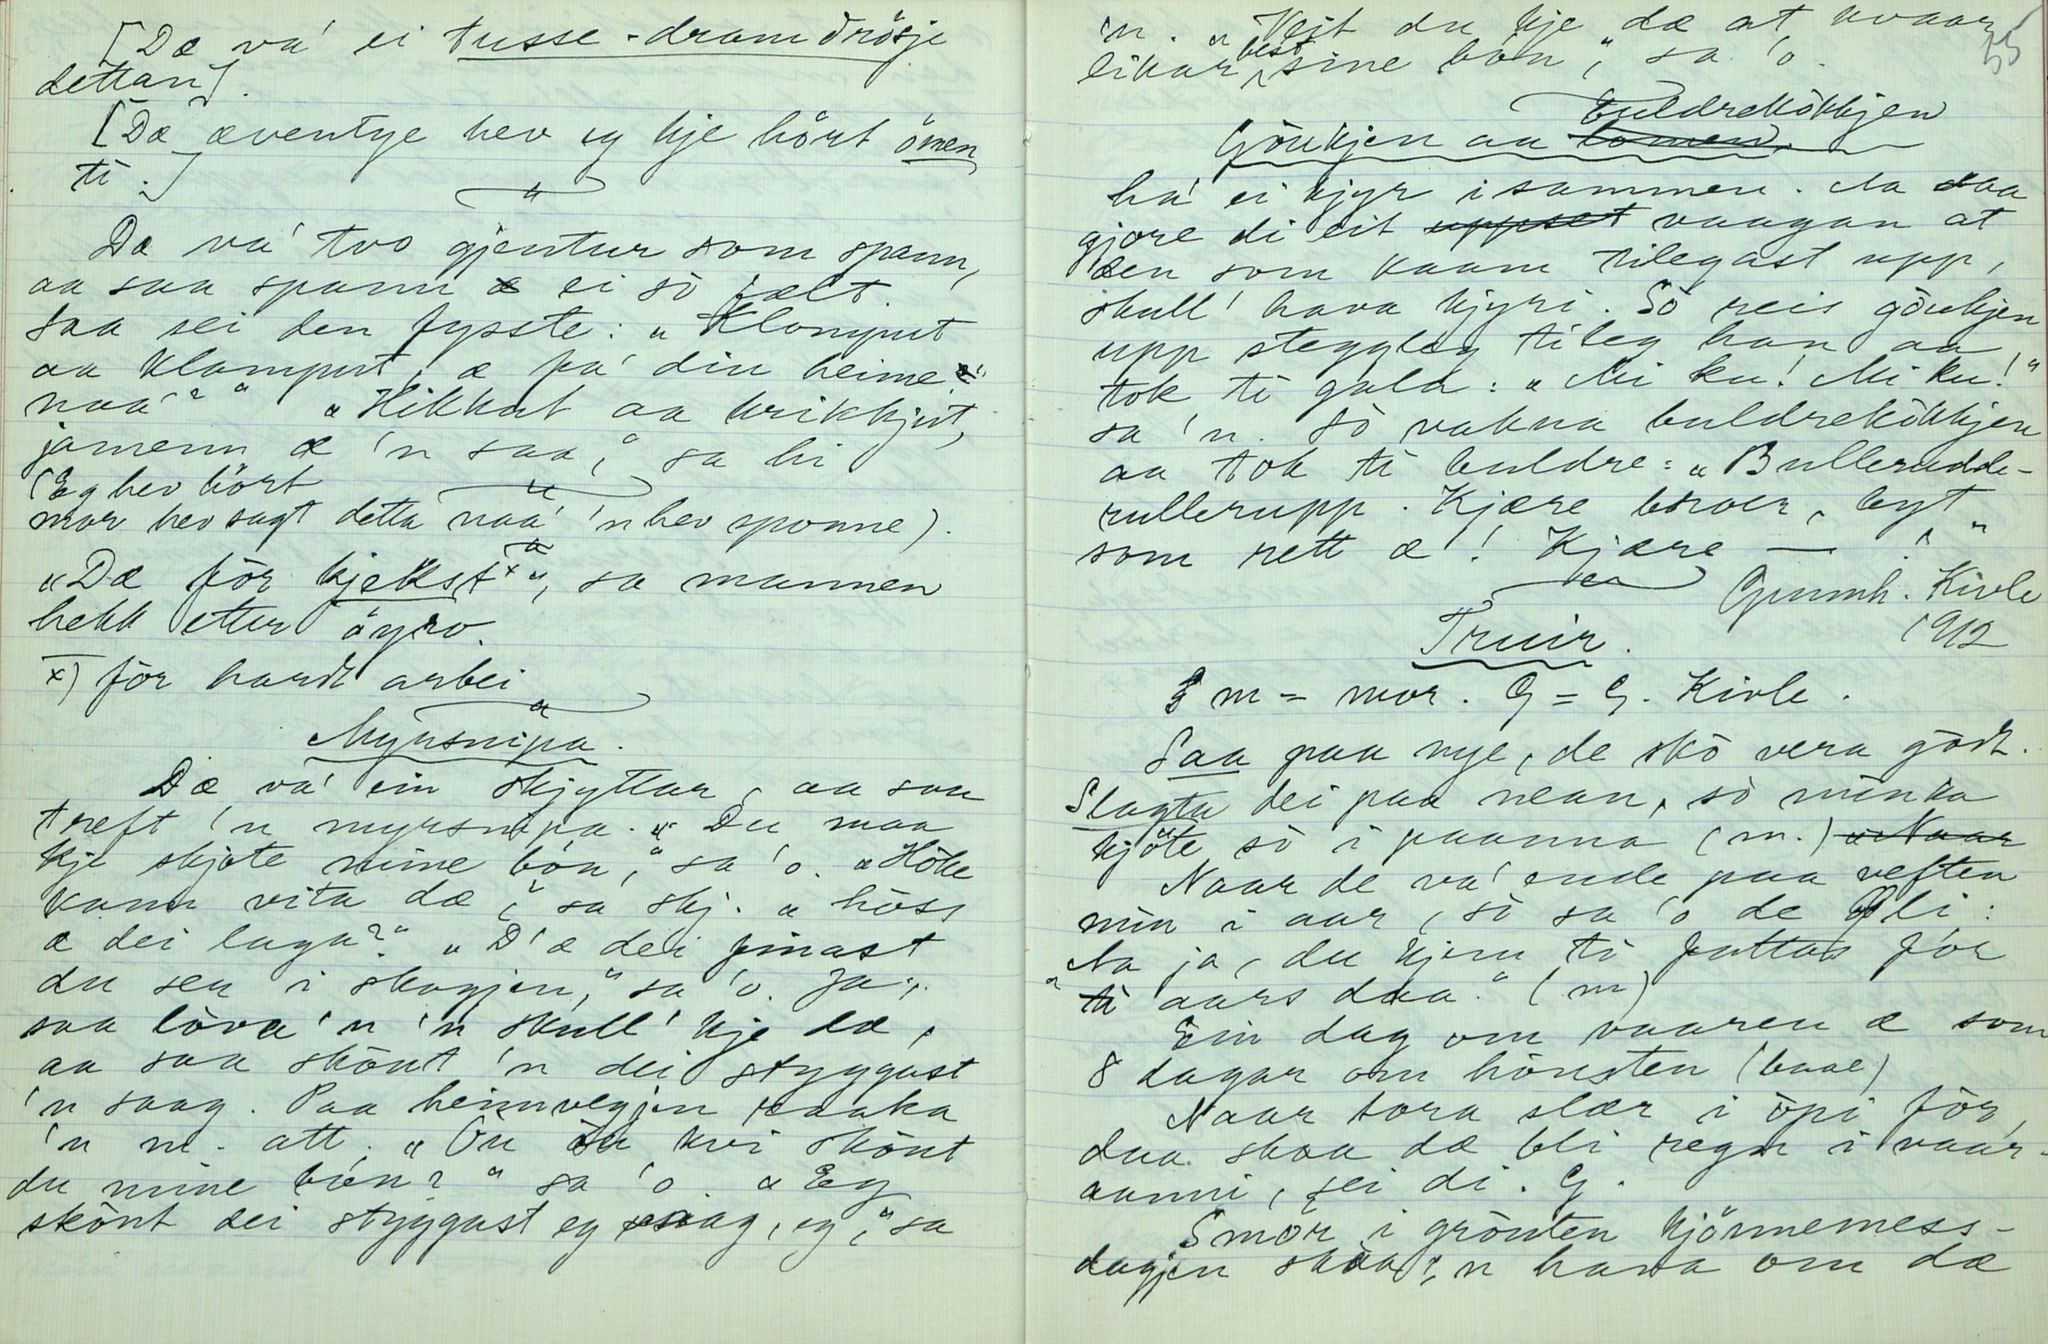 [Dæ va' ei tusse-dram drösje
dettan].
[Dæ æventye hev eg kje hört ömen
ti.]
Dæ va' tvo gjentur som spann,
aa saa spann ei so jælt.
Saa sei den fysste: „Klomput
aa klamput, æ fa' din heime
naa'?" „Hikkut aa krikkjut,
jamenn æ 'n saa," sa hi
(Eg hev hört
mor hev sagt detta naa' 'n hev sponne).
„Dæ för kjekst x", sa mannen
hekk etter öyro.
x) för hardt arbei
Myrsnipa.
Dæ va' ein skjyttar, aa saa
treft 'n myrsnipa. „Du maa
kje skjote mine bón," sa 'o. „Höke
kann vita dæ," sa skj. „höss
æ dei laga?" „D'æ dei finast
du ser i skogjen," sa 'o. Ja,
saa lova 'n 'n skull' kje dæ,
aa saa skönt 'n dei styggast
'n saag. Paa heimvegjen raaka
'n m. att. „Ou ou kvi skönt
du mine bón?" sa 'o. „Eg
skönt dei styggast eg saag, eg," sa
55
'n. „Veit du kje dæ at kvaar
likar best sine bón," sa 'o.
buldrekökkjen
Göukjen aa lomen
ha' ei kjyr i sammen. Aa daa
gjore di eit uppset vaagan at
den som kaam tilegast upp,
skull' hava kjyri. So reis göukjen
upp steggleg tileg han aa
tok ti gala: „Mi ku! Mi ku!"
sa 'n. So vakna buldrekökkjen
aa tok ti buldre: „Bullerudde-
rullerupp. Kjære broer, byt
som rett æ! Kjære — ."
Gunnh. Kivle
1912
Truir.
m = mor. G = G. Kivle.
Saa paa nye, de sko vera godt.
Slagta dei paa nean, so minka
kjöte so i paanna (m.) Naar
Naar de va' ende paa veften
min i aar, so sa 'o de Pli:
„Aa ja, du kjem ti futtas for
ti aars daa." (m)
Ein dag om vaaren æ som
8 dagar om hönsten (baae)
Naar tora slær i öpi för,
daa skaa dæ bli regn i vaar-
aanni, sei di. G.
Smör i grönten kjörmemess-
dagjen skaa 'n hava om dæ